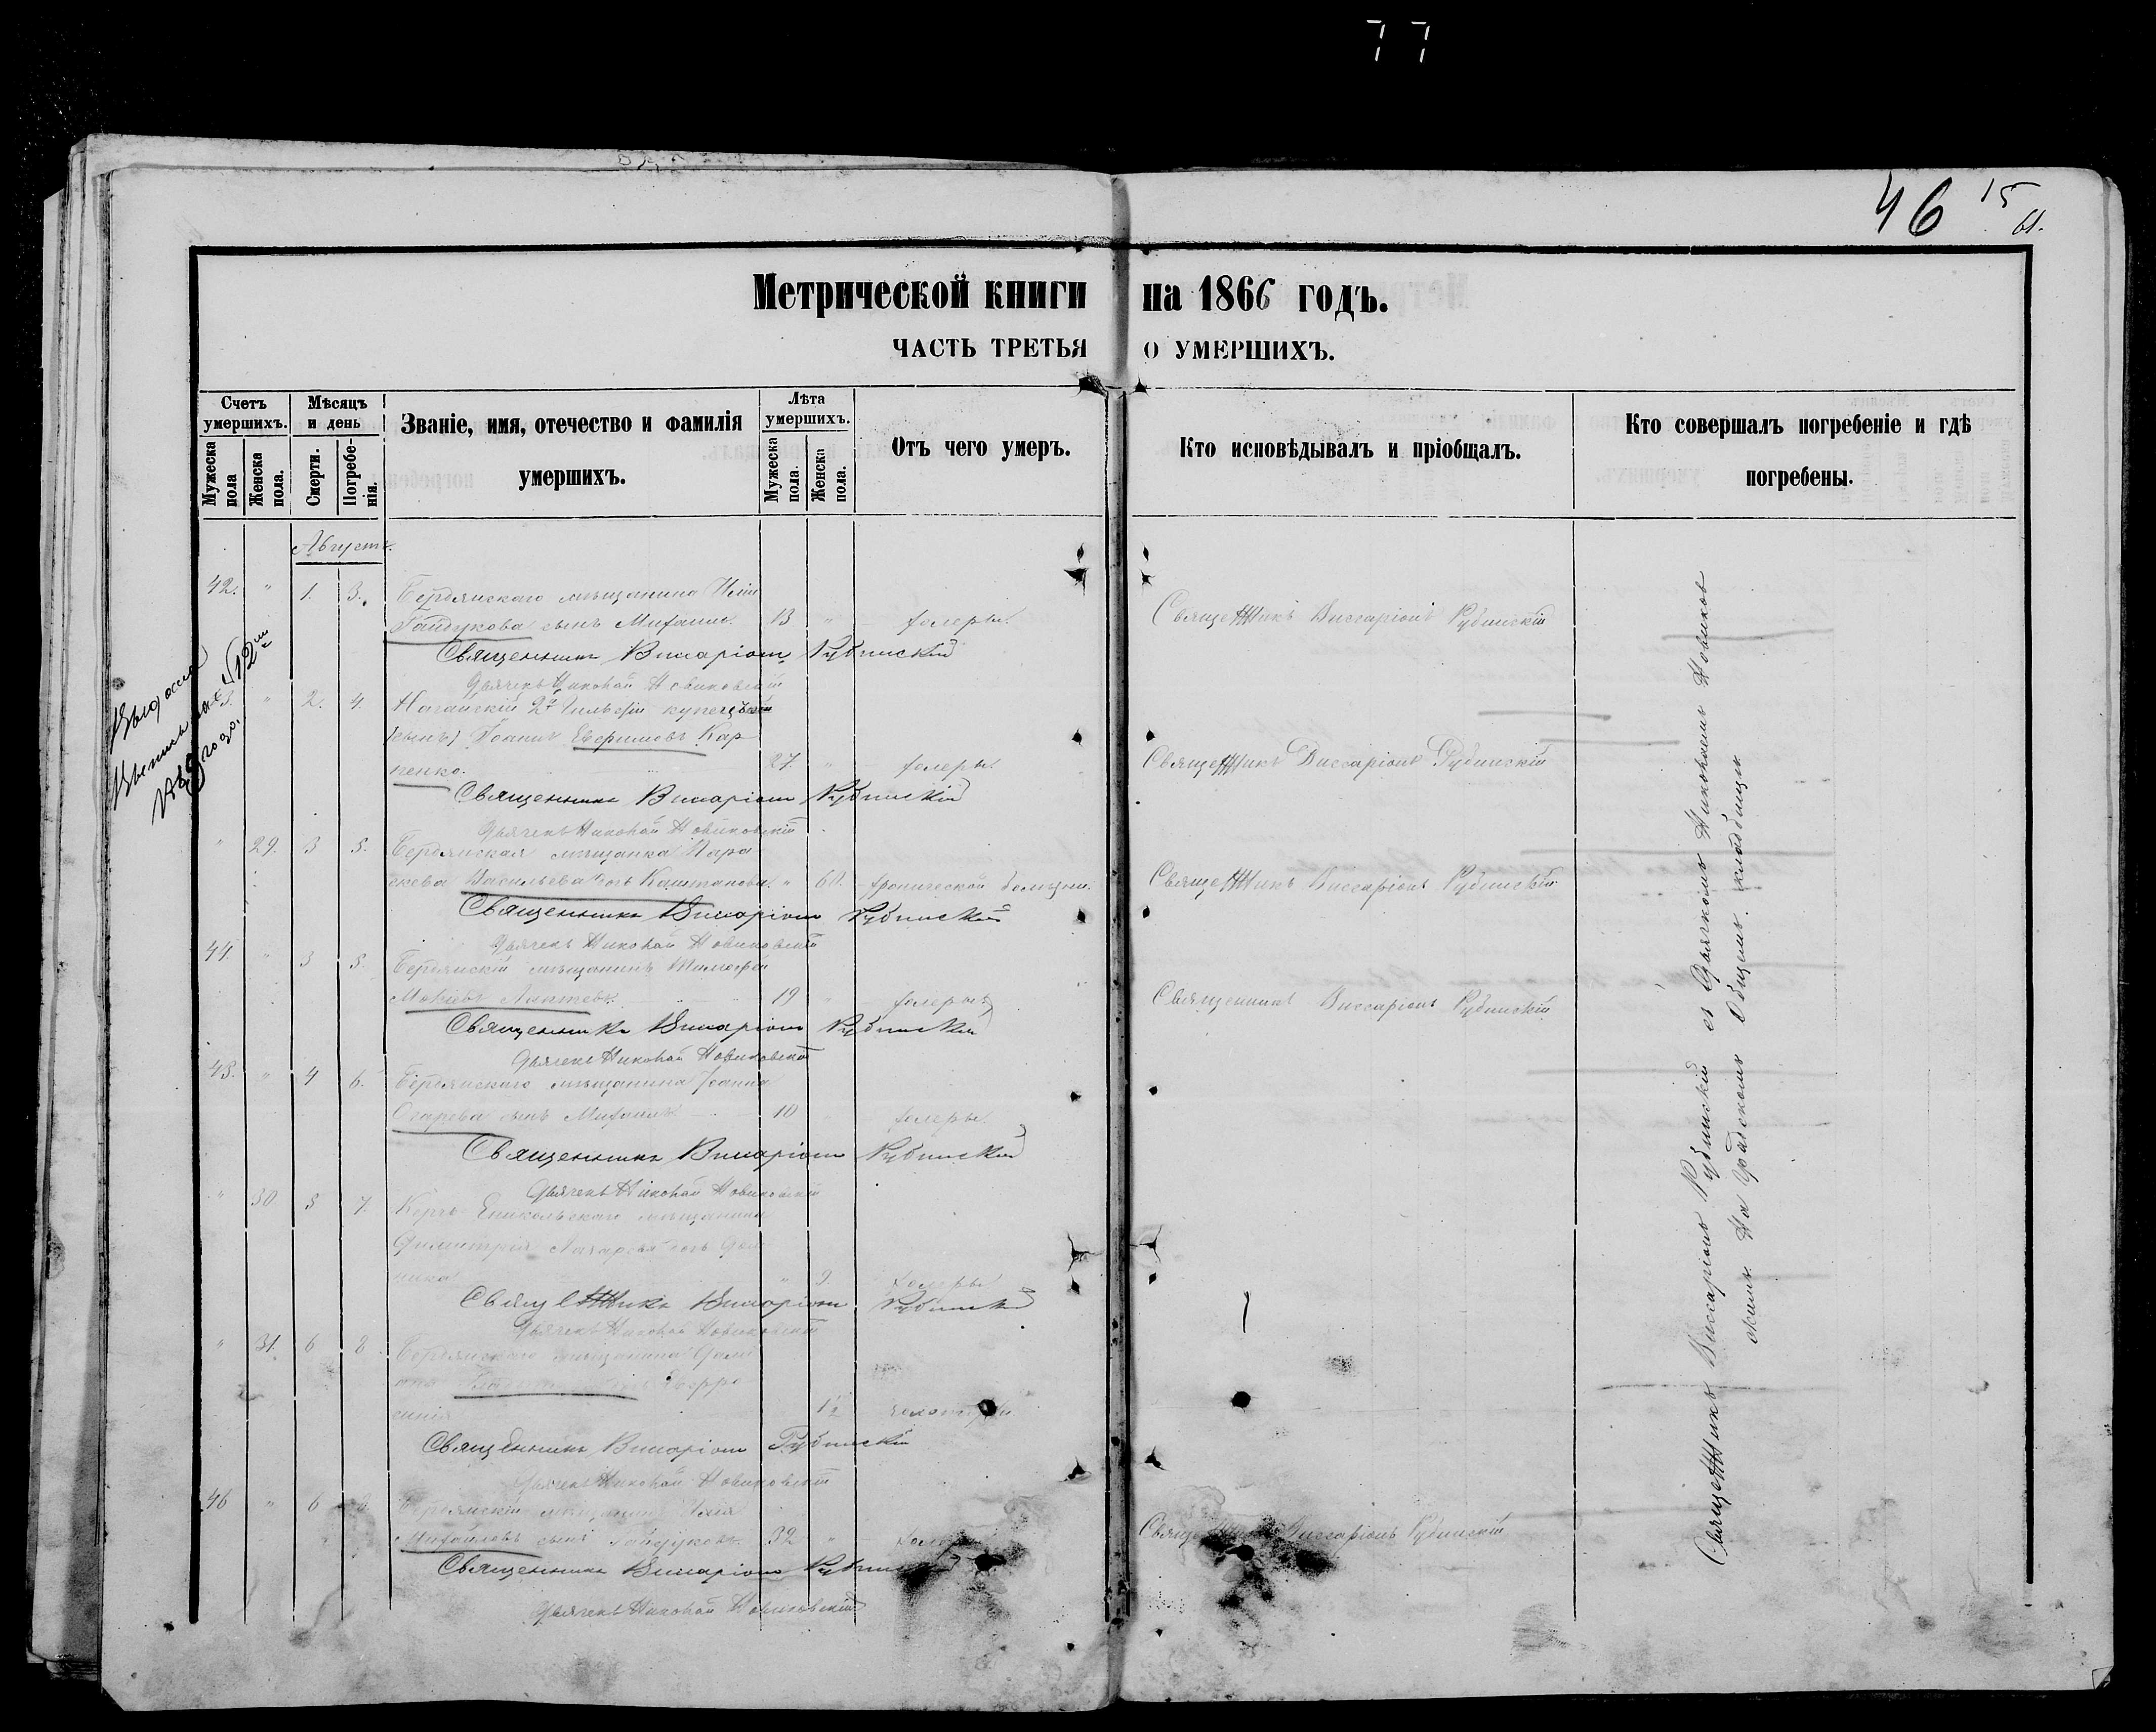 77
46 15
61.
Метрической книги на 1866 годъ.
ЧАСТЬ ТРЕТЬЯ О УМЕРШИХЪ.
Счетъ умершихъ.
Мужеска пола
Женска пола.
Мѣсяцъ и день
Смерти.
Погребенія.
Званіе, имя, отечество и фамилія умершихъ.
Лѣта умершихъ.
Мужеска пола.
Женска пола.
Отъ чего умеръ.
Кто исповѣдывалъ и пріобщалъ.
Кто совершалъ погребеніе и гдѣ погребены.
Августъ.
42. " 1. 3. Бердянскаго мѣщанина Иліи
Гайдукова сынъ Михаилъ. 13 " холеры. Священникъ Виссаріонъ Рубинскій
Священникъ Виссаріонъ Рубинскій
Дьячекъ Николай Новиковскій
43. " 2. 4. Ногайскій 2й гильдіи купеческій
сынъ Іоаннъ Евфимовъ Кар
пенко. 27. " холеры. Священникъ Виссаріонъ Рубинскій
Священникъ Виссаріонъ Рубинскій
Дьячекъ Николай Новиковскій
" 29. 3 5. Бердянская мѣщанка Пара
скева Васильева дочь Каштанова. " 60. хронической болѣзни. Священникъ Виссаріонъ Рубинскій
Священникъ Виссаріонъ Рубинскій
Дьячекъ Николай Новиковскій
44. " 3 5. Бердянскій мѣщанинъ Тимофей
Мокіевъ Лаптевъ. 19 " холеры. Священникъ Виссаріонъ Рубинскій
Священникъ Виссаріонъ Рубинскій
Дьячекъ Николай Новиковскій
45. " 4 6. Бердянскаго мѣщанина Іоанна
сынъ Михаилъ. 10 холеры.
Священникъ Виссаріонъ Рубинскій
Дьячекъ Николай Новиковскій
" 30 5 7. Керчь Еникольскаго мѣщанина
Димитрія Лазарева дочь
" 9 холеры
Священникъ Виссаріонъ Рубинскій
Дьячекъ Николай Новиковскій
" 31. 6 8. Бердянскаго мѣщанина
дочь
1½
Священникъ Виссаріонъ Рубинскій
Дьячекъ Николай Новиковскій
46 " 6 8. Бердянскій мѣщанинъ Илія
Михайловъ сынъ Гайдуковъ. 32 " Священникъ Виссаріонъ Рубинскій
Священникъ Виссаріонъ
Дьячекъ Николай Новиковскій
Священникъ Виссаріонъ Рубинскій съ Дьячкомъ Николаемъ Новиков
скимъ. На Градскомъ Общемъ кладбищѣ